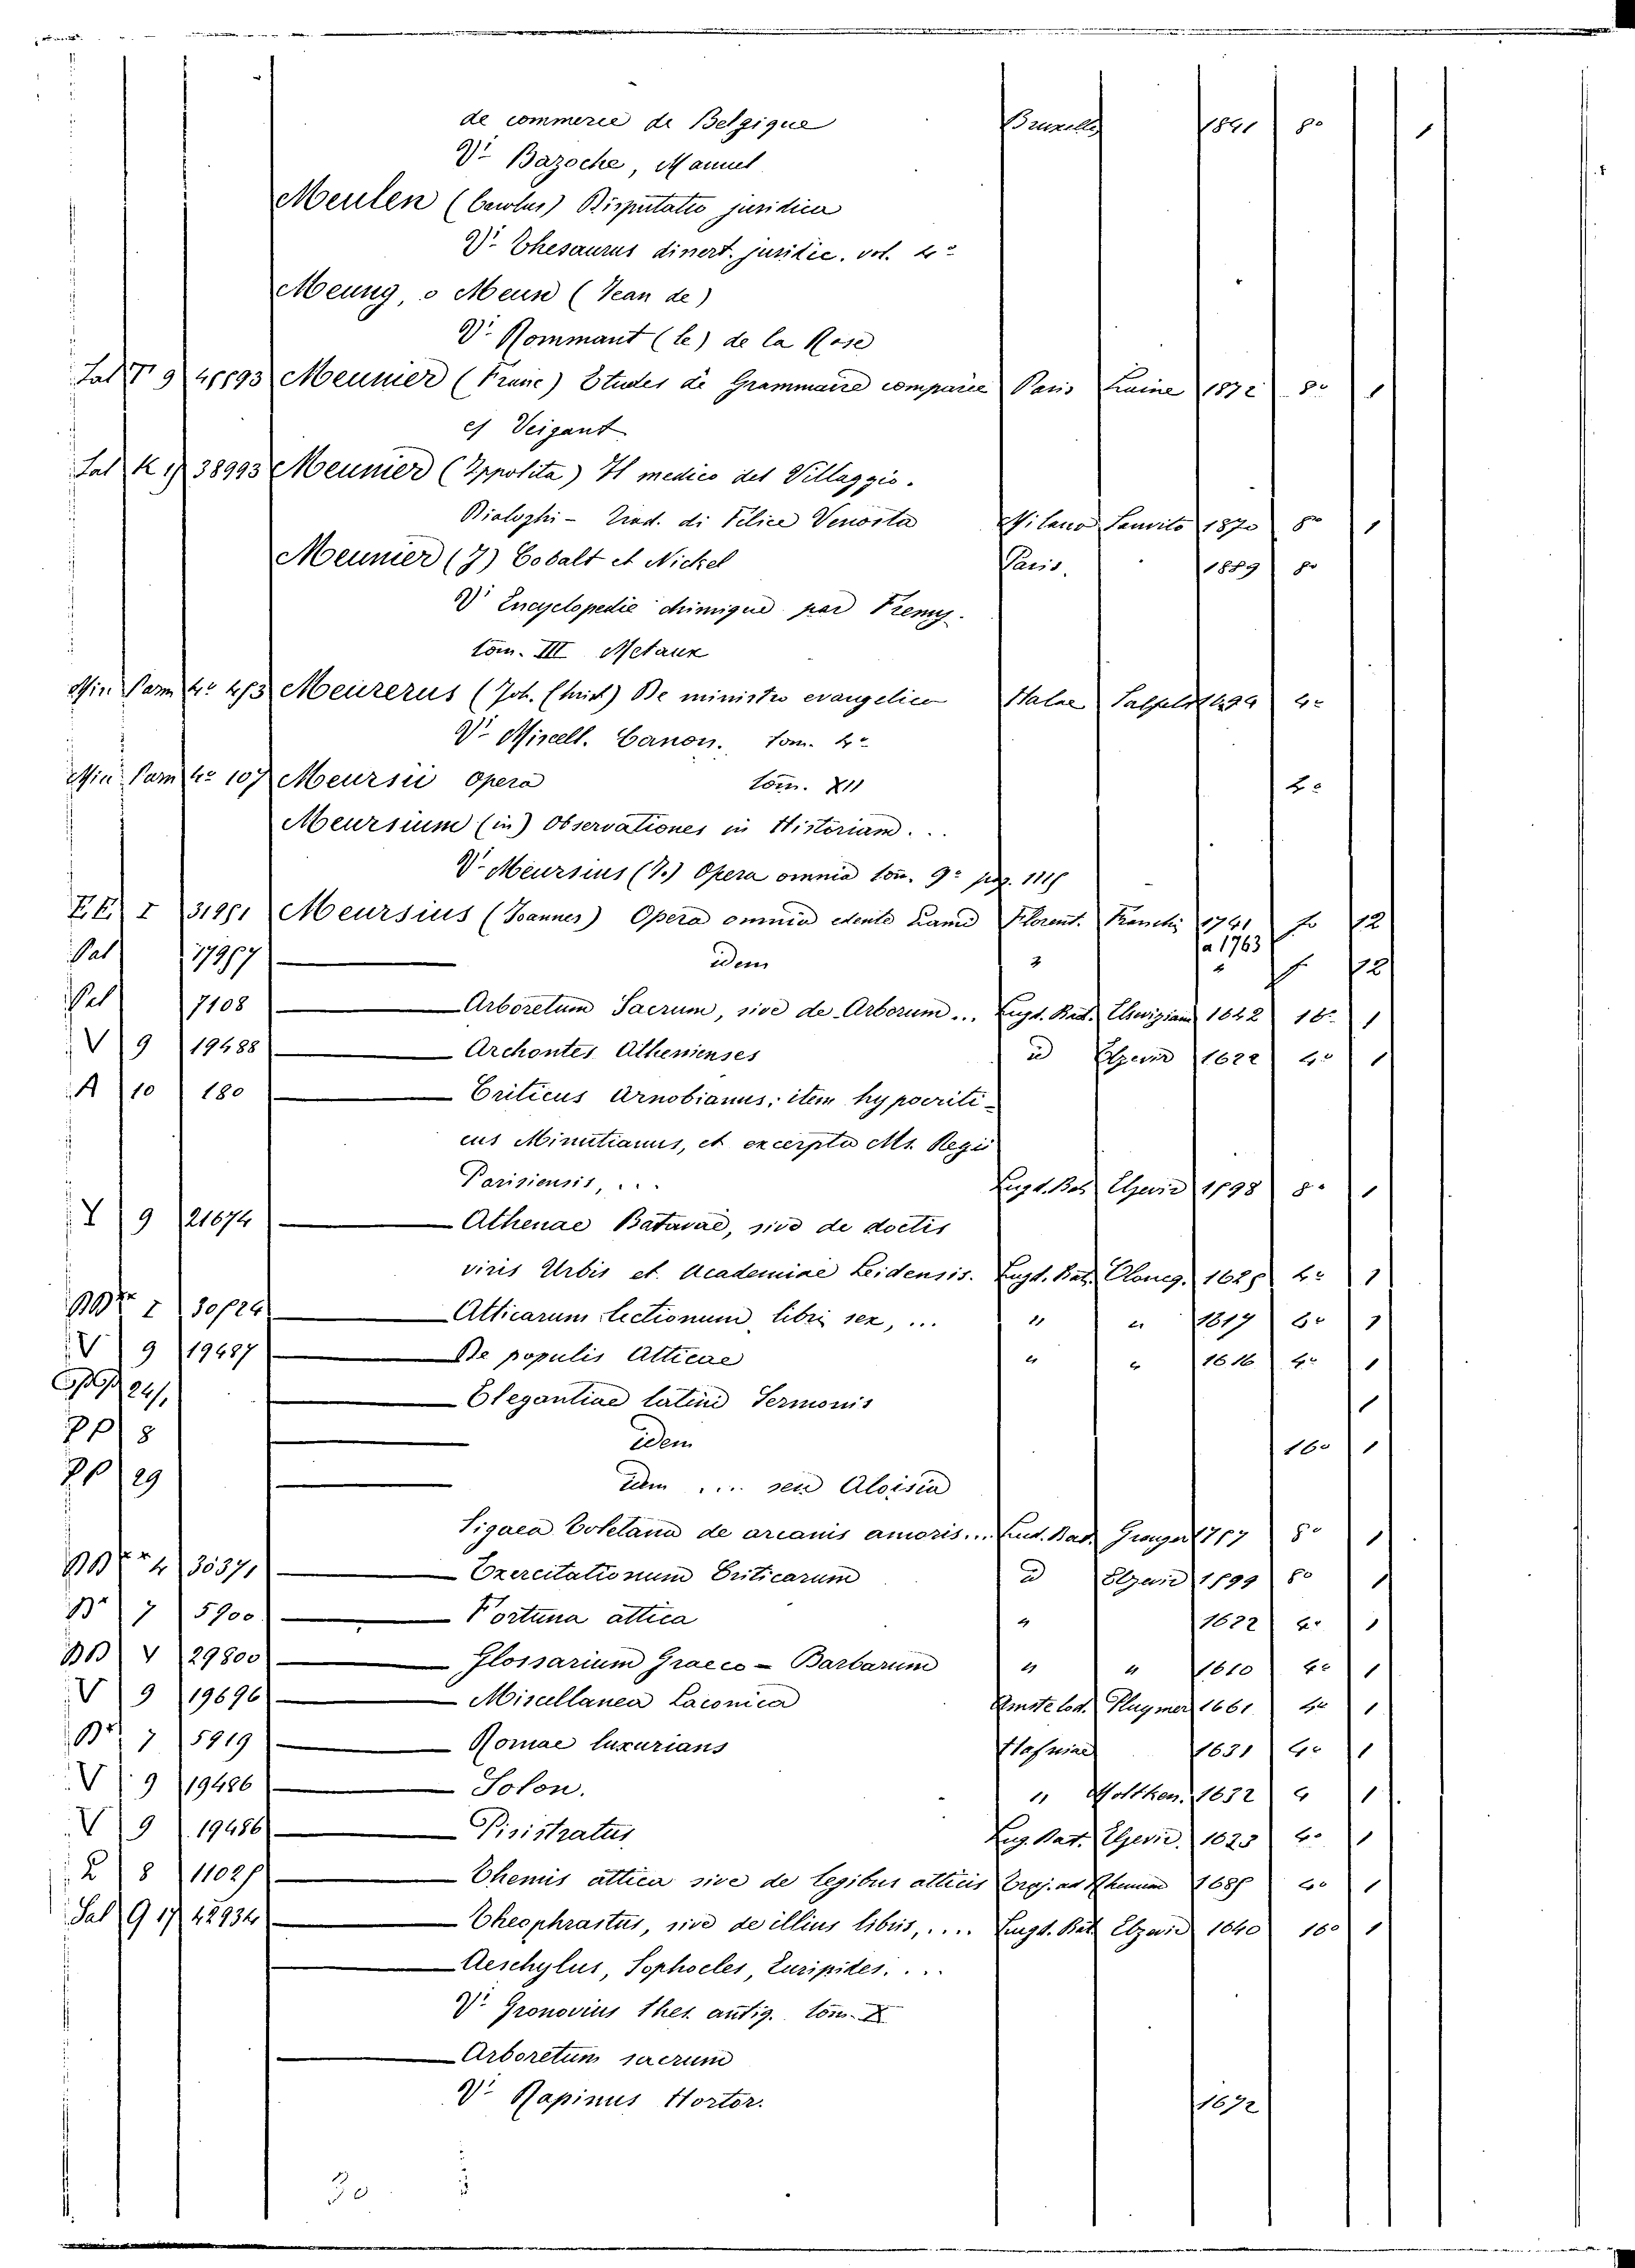 de commerce de Belgique Bruxelles 1841 8º 1
Vi Bazoche, Manuel
Meulen (Carolus) Disputatio juridica
Vi Thesaurus dissert. juridic. vol. 4º
Meung, o Meun (Jean de)
Vi Rommant (le) de la Rose
Sal T 9 Meunier (Franc) Etudes de Grammaire comparée Paris 1872 8º 1
es Veigant
Sal K 17 38993 Meunier (Ippolita) Il medico del Villaggio.
Dialoghi - Trad. di Felice Venosta Milano Sanvito 1870 8º 1
Meunier (J) Cobalt et Nickel Paris. 1889 8º
Vi Encyclopedie chimique par Fremy.
tom. III Metaux
Min Parm 4º Meurerus (Joh. Christ) De ministro evangelico Halae 4º
Vi Miscell. Canon. tom. 4º
Min Parm 4º 107 Meursii opera tom. XII 4º
Meursium (in) Observationes in Historiam...
Vi Meursius (J.) Opera omnia tom. 9º pag. 1115
EE I 31951 Meursius (Joannes) Opera omnia edente Lamio Florent. 1741 fo 12
a 1763
Pal 17957 idem " " f. 12
Pal 7108 Arboretum Sacrum, sive de Arborum... Lugd. Bat. 1642 16º 1
V 9 19488 Archontes Athenienses id Elzevir 1622 4º 1
A 10 180 Criticus Arnobianus; item hypocriti-
cus Minutianus, et excerpta Ms. Regii
Parisiensis, ... Lugd. Bat Elzevir 1598 8º 1
Y 9 21674 Athenae Batavae, sive de doctis
viris Urbis et Academiae Leidensis. Lugd. Bat. 1625 4º 1
BB** I 30524 Atticarum lectionum, libri sex, ... " " 1617 6º 1
V 9 19487 De populis Atticae " " 1616 4º 1
24/1 Elegantiae latini Sermonis 1
PP 8 idem 16º 1
PP 29 idem .... seu Aloisia
Sigaea Toletana de arcanis amoris... Lud. Bat. 1757 8º 1
BB** 4 30371 Exercitationum Criticarum id Elzevir 1599 8º 1
B* 7 5900 Fortuna attica " 1622 4º 1
BB V 29800 Glossarium Graeco - Barbarum " " 1610 4º 1
V 9 19696 Miscellanea Laconica Amstelod. 1661 4º 1
B* 7 5919 Romae luxurians Hafniae 1631 4º 1
V 9 19486 Solon. " Moltken. 1632 4 1
V 9 19486 Pisistratus Lug. Bat. Elzevir. 1623 4º 1
Z 8 11025 Themis attica sive de legibus atticis Traj. ad Rhenum 1685 4º 1
Sal Q 17 42934 Theophrastus, sive de illius libris, .... Lugd. Bat Elzevir 1640 16º 1
Aeschylus, Sophocles, Euripides....
Vi Gronovius thes. antiq. tom. X
Arboretum sacrum
Vi Rapinus Hortor. 1672
30